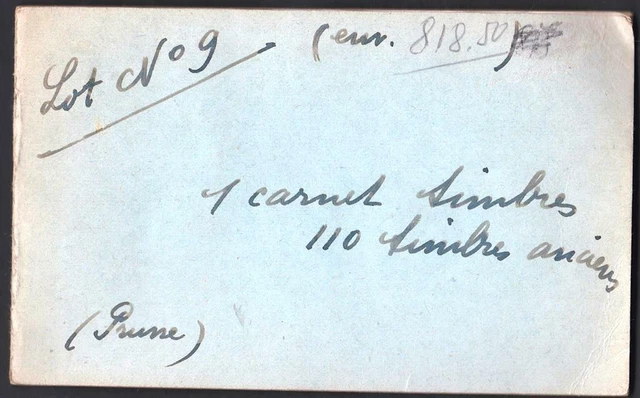 Lot N° 9 (env. 818.50)
1 carnet timbres
110 timbres anciens
(Prune)